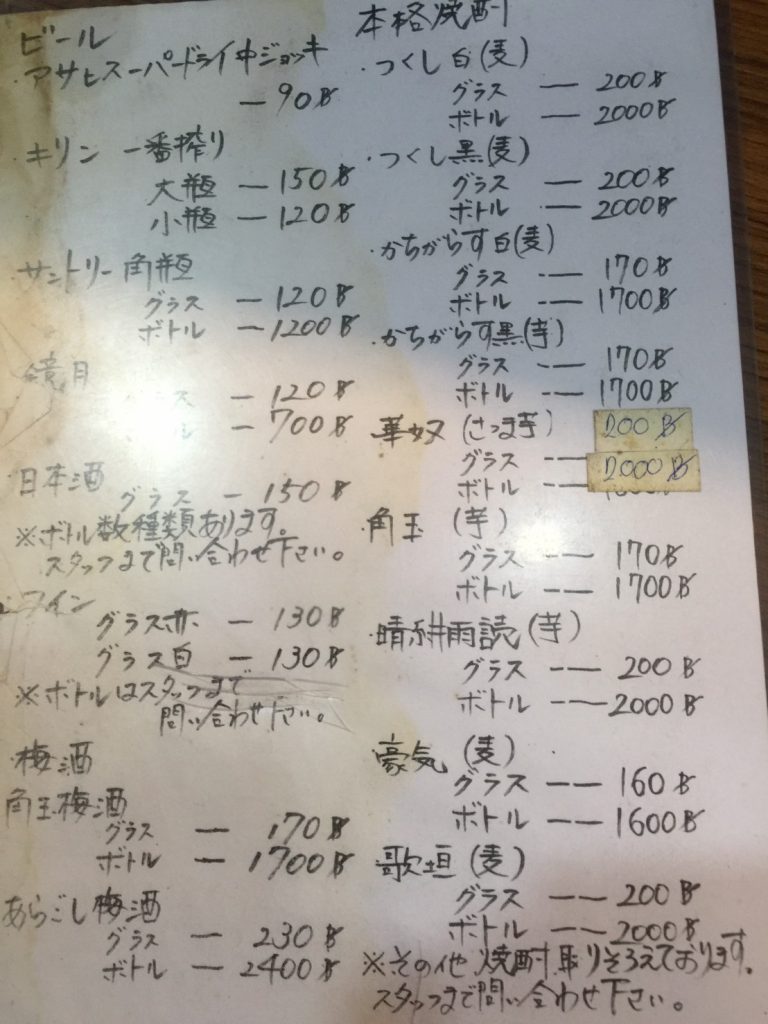 ビール
・アサヒスーパードライ中ジョッキ
― 90฿
・キリン 一番搾り
大瓶 ― 150฿
小瓶 ― 120฿
・サントリー角瓶
グラス ― 120฿
ボトル ― 1200฿
鏡月
グラス ― 120฿
ボトル ― 700฿
日本酒
グラス ― 150฿
※ボトル数種類あります。
スタッフまで問い合わせ下さい。
・ワイン
グラス赤 ― 130฿
グラス白 ― 130฿
※ボトルはスタッフまで
問い合わせ下さい。
梅酒
角玉梅酒
グラス ― 170฿
ボトル ― 1700฿
あらごし梅酒
グラス ― 230฿
ボトル ― 2400฿
本格焼酎
・つくし白(麦)
グラス ― 200฿
ボトル ― 2000฿
・つくし黒(麦)
グラス ― 200฿
ボトル ― 2000฿
・かちがらす白(麦)
グラス ― 170฿
ボトル ― 1700฿
・かちがらす黒(芋)
グラス ― 170฿
ボトル ― 1700฿
華奴(さつま芋)
200฿
グラス ―
2000฿
ボトル ―
角玉(芋)
グラス ― 170฿
ボトル ― 1700฿
・晴耕雨読(芋)
グラス ― 200฿
ボトル ― 2000฿
豪気(麦)
グラス ― 160฿
ボトル ― 1600฿
・歌垣(麦)
グラス ― 200฿
ボトル ― 2000฿
※その他 焼酎取りそろえております。
スタッフまで問い合わせ下さい。